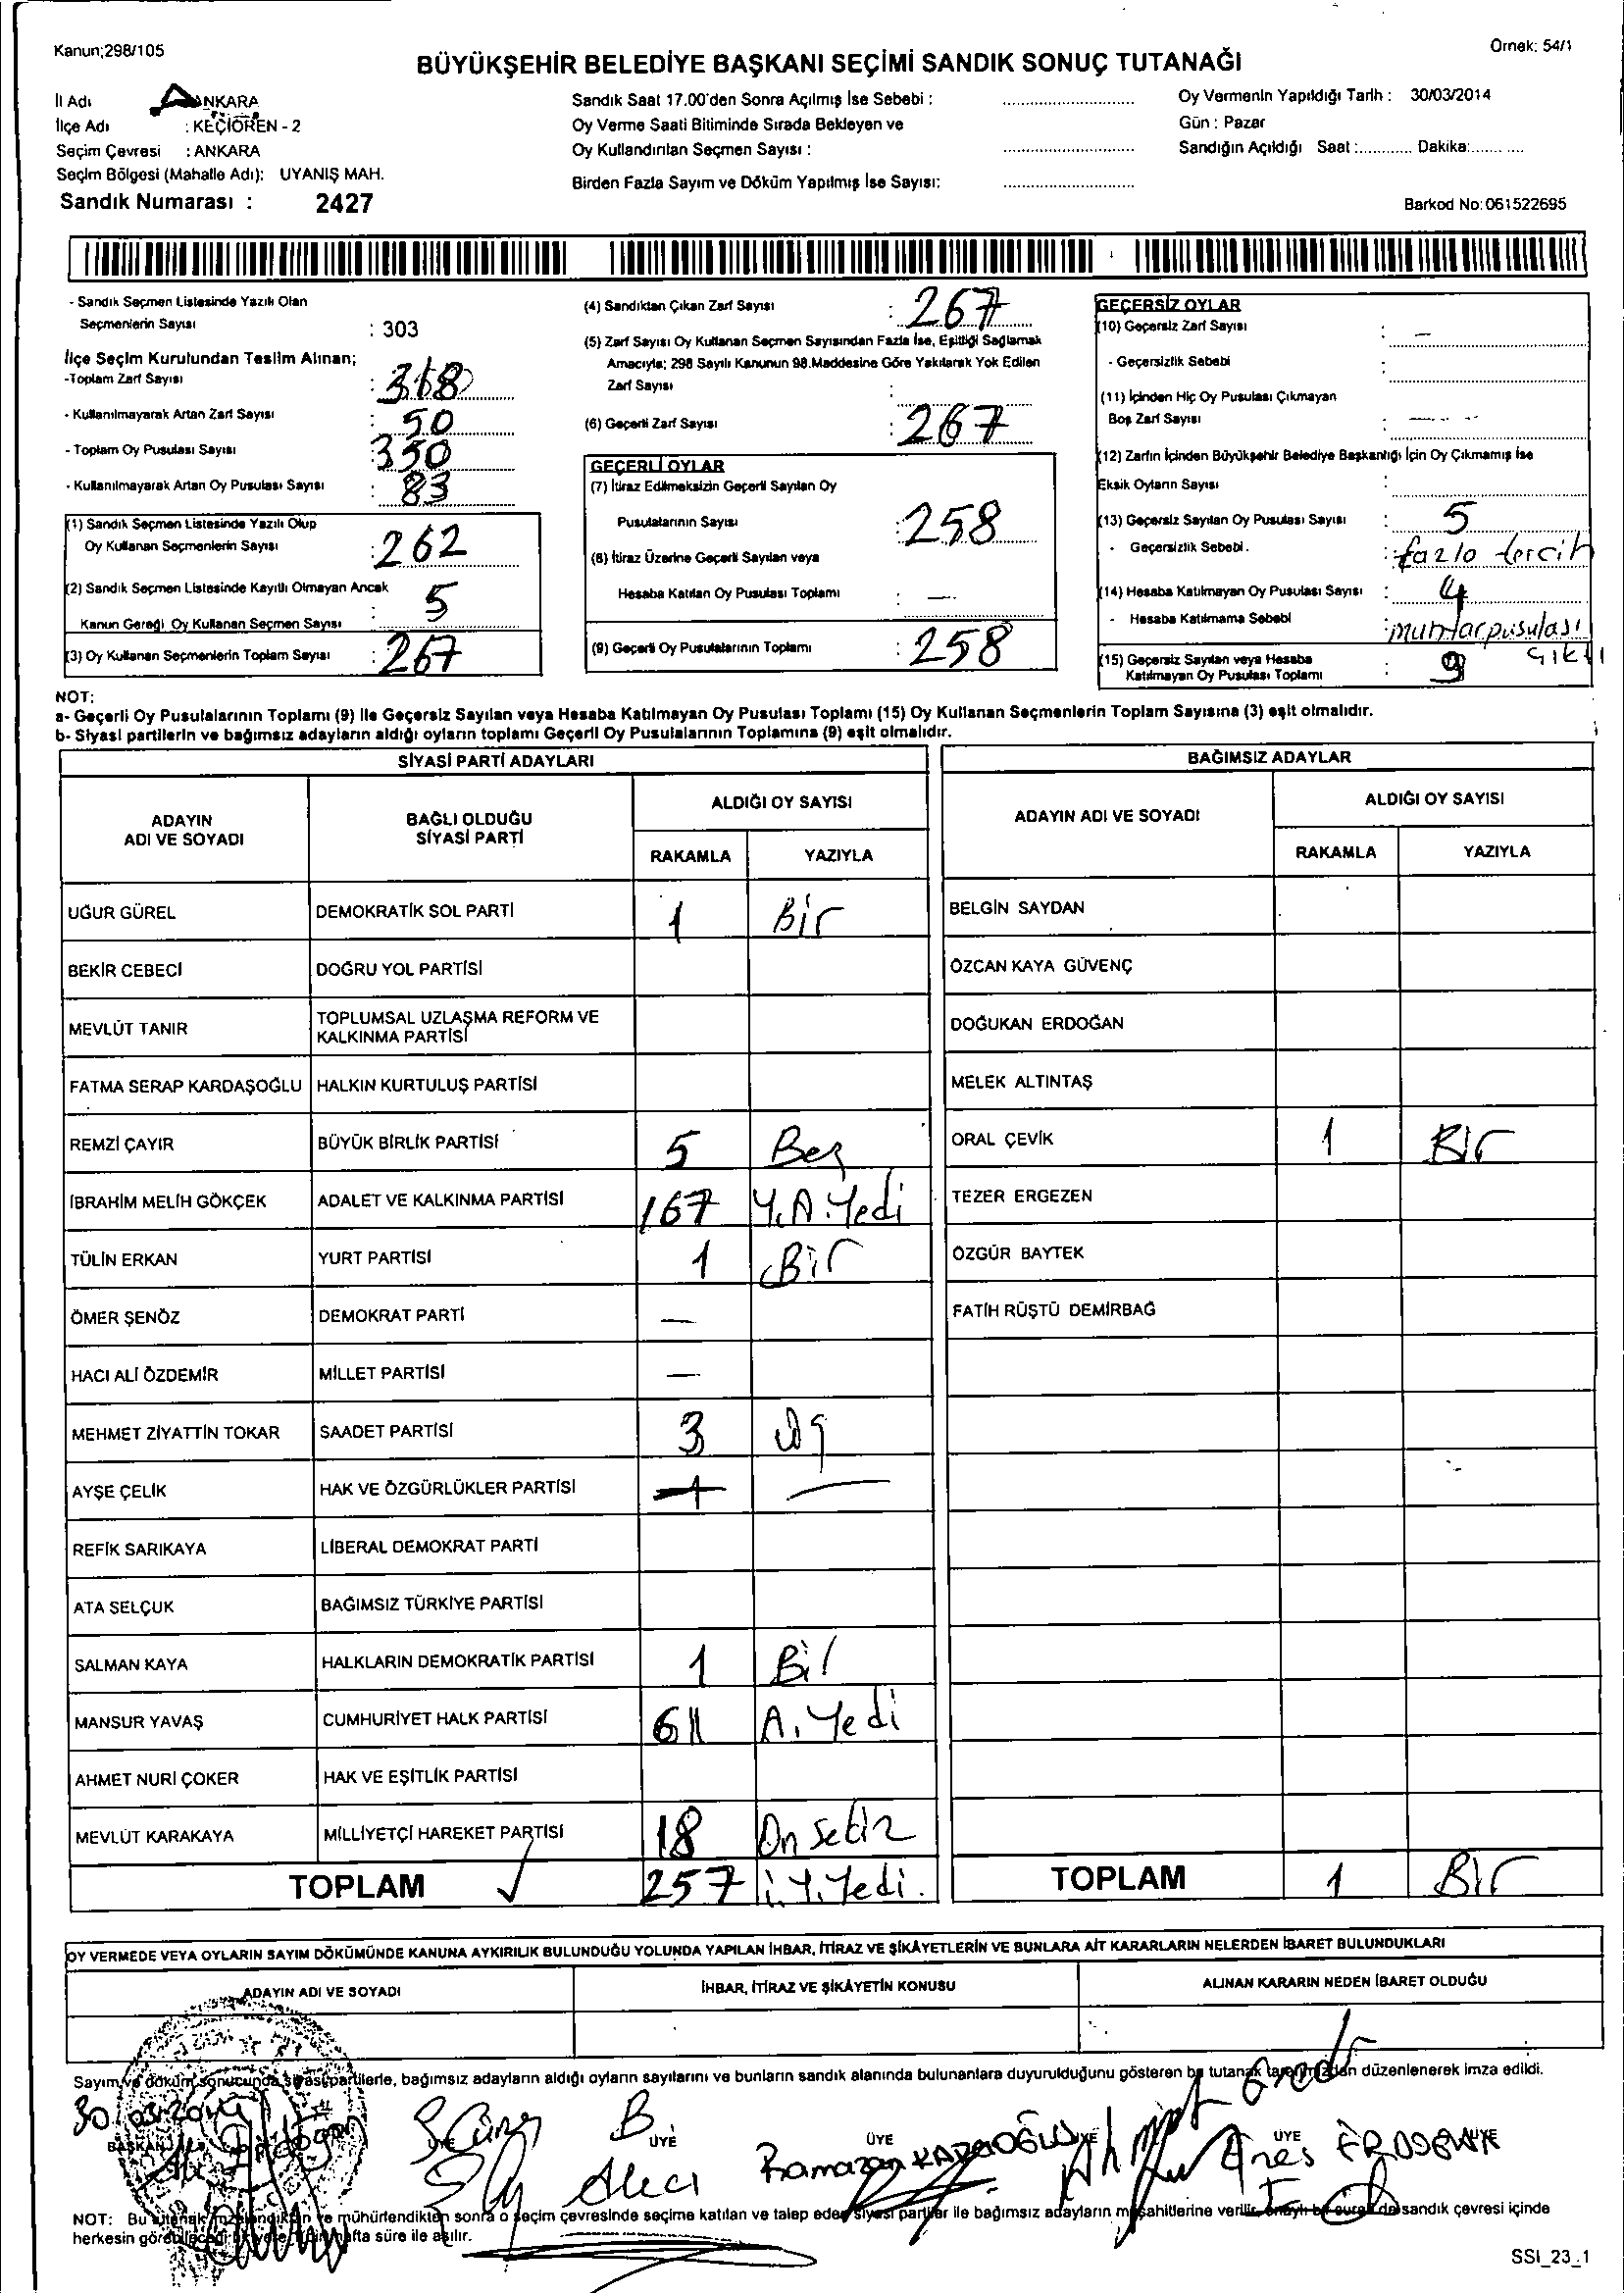 Kanun;298/105
Örnek: 54/1
BÜYÜKŞEHİR BELEDİYE BAŞKANI SEÇİMİ SANDIK SONUÇ TUTANAĞI
İl Adı : ANKARA
İlçe Adı : KEÇİÖREN - 2
Seçim Çevresi : ANKARA
Seçim Bölgesi (Mahalle Adı): UYANIŞ MAH.
Sandık Numarası : 2427
Sandık Saat 17.00'den Sonra Açılmış İse Sebebi :
Oy Verme Saati Bitiminde Sırada Bekleyen ve
Oy Kullandırılan Seçmen Sayısı :
Birden Fazla Sayım ve Döküm Yapılmış İse Sayısı:
Oy Vermenin Yapıldığı Tarih : 30/03/2014
Gün : Pazar
Sandığın Açıldığı Saat :............ Dakika:............
Barkod No:061522695
- Sandık Seçmen Listesinde Yazılı Olan
Seçmenlerin Sayısı : 303
İlçe Seçim Kurulundan Teslim Alınan;
-Toplam Zarf Sayısı :
- Kullanılmayarak Artan Zarf Sayısı : 50
- Toplam Oy Pusulası Sayısı : 350
- Kullanılmayarak Artan Oy Pusulası Sayısı : 83
(1) Sandık Seçmen Listesinde Yazılı Olup
Oy Kullanan Seçmenlerin Sayısı : 262
(2) Sandık Seçmen Listesinde Kayıtlı Olmayan Ancak
Kanun Gereği Oy Kullanan Seçmen Sayısı : 5
(3) Oy Kullanan Seçmenlerin Toplam Sayısı : 267
(4) Sandıktan Çıkan Zarf Sayısı : 267
(5) Zarf Sayısı Oy Kullanan Seçmen Sayısından Fazla İse, Eşitliği Sağlamak
Amacıyla; 298 Sayılı Kanunun 98.Maddesine Göre Yakılarak Yok Edilen
Zarf Sayısı :
(6) Geçerli Zarf Sayısı : 267
GEÇERLİ OYLAR
(7) İtiraz Edilmeksizin Geçerli Sayılan Oy
Pusulalarının Sayısı : 258
(8) İtiraz Üzerine Geçerli Sayılan veya
Hesaba Katılan Oy Pusulası Toplamı : —
(9) Geçerli Oy Pusulalarının Toplamı : 258
GEÇERSİZ OYLAR
(10) Geçersiz Zarf Sayısı : —
- Geçersizlik Sebebi :
(11) İçinden Hiç Oy Pusulası Çıkmayan
Boş Zarf Sayısı : —
(12) Zarfın İçinden Büyükşehir Belediye Başkanlığı İçin Oy Çıkmamış İse
Eksik Oyların Sayısı :
(13) Geçersiz Sayılan Oy Pusulası Sayısı : 5
- Geçersizlik Sebebi. : fazla tercih
(14) Hesaba Katılmayan Oy Pusulası Sayısı : 4
- Hesaba Katılmama Sebebi : muhtar pusulası
çıktı
(15) Geçersiz Sayılan veya Hesaba
Katılmayan Oy Pusulası Toplamı : 9
NOT:
a- Geçerli Oy Pusulalarının Toplamı (9) İle Geçersiz Sayılan veya Hesaba Katılmayan Oy Pusulası Toplamı (15) Oy Kullanan Seçmenlerin Toplam Sayısına (3) eşit olmalıdır.
b- Siyasi partilerin ve bağımsız adayların aldığı oyların toplamı Geçerli Oy Pusulalarının Toplamına (9) eşit olmalıdır.
SİYASİ PARTİ ADAYLARI
ADAYIN ADI VE SOYADI
BAĞLI OLDUĞU SİYASİ PARTİ
ALDIĞI OY SAYISI
RAKAMLA YAZIYLA
UĞUR GÜREL DEMOKRATİK SOL PARTİ 1 Bir
BEKİR CEBECİ DOĞRU YOL PARTİSİ
MEVLÜT TANIR TOPLUMSAL UZLAŞMA REFORM VE KALKINMA PARTİSİ
FATMA SERAP KARDAŞOĞLU HALKIN KURTULUŞ PARTİSİ
REMZİ ÇAYIR BÜYÜK BİRLİK PARTİSİ 5 Beş
İBRAHİM MELİH GÖKÇEK ADALET VE KALKINMA PARTİSİ 167 Y.A.Yedi
TÜLİN ERKAN YURT PARTİSİ 1 Bir
ÖMER ŞENÖZ DEMOKRAT PARTİ —
HACI ALİ ÖZDEMİR MİLLET PARTİSİ —
MEHMET ZİYATTİN TOKAR SAADET PARTİSİ 3 üç
AYŞE ÇELİK HAK VE ÖZGÜRLÜKLER PARTİSİ —
REFİK SARIKAYA LİBERAL DEMOKRAT PARTİ
ATA SELÇUK BAĞIMSIZ TÜRKİYE PARTİSİ
SALMAN KAYA HALKLARIN DEMOKRATİK PARTİSİ 1 Bir
MANSUR YAVAŞ CUMHURİYET HALK PARTİSİ A.Yedi
AHMET NURİ ÇOKER HAK VE EŞİTLİK PARTİSİ
MEVLÜT KARAKAYA MİLLİYETÇİ HAREKET PARTİSİ 18 On sekiz
TOPLAM 257 i.Y.Yedi.
BAĞIMSIZ ADAYLAR
ADAYIN ADI VE SOYADI
ALDIĞI OY SAYISI
RAKAMLA YAZIYLA
BELGİN SAYDAN
ÖZCAN KAYA GÜVENÇ
DOĞUKAN ERDOĞAN
MELEK ALTINTAŞ
ORAL ÇEVİK 1 Bir
TEZER ERGEZEN
ÖZGÜR BAYTEK
FATİH RÜŞTÜ DEMİRBAĞ
TOPLAM 1 Bir
OY VERMEDE VEYA OYLARIN SAYIM DÖKÜMÜNDE KANUNA AYKIRILIK BULUNDUĞU YOLUNDA YAPILAN İHBAR, İTİRAZ VE ŞİKÂYETLERİN VE BUNLARA AİT KARARLARIN NELERDEN İBARET BULUNDUKLARI
ADAYIN ADI VE SOYADI
İHBAR, İTİRAZ VE ŞİKÂYETİN KONUSU
ALINAN KARARIN NEDEN İBARET OLDUĞU
Sayım ve döküm sonucunda siyasi partilerle, bağımsız adayların aldığı oyların sayılarını ve bunların sandık alanında bulunanlara duyurulduğunu gösteren bu tutanak tarafımızdan düzenlenerek imza edildi.
30.03.2014
BAŞKAN ÜYE ÜYE ÜYE ÜYE
Ramazan KARAOĞLU
NOT: Bu tutanak imzalandıktan ve mühürlendikten sonra o seçim çevresinde seçime katılan ve talep eden siyasi partiler ile bağımsız adayların müşahitlerine verilir. sandık çevresi içinde
herkesin hafta süre ile asılır.
SSI_23_1